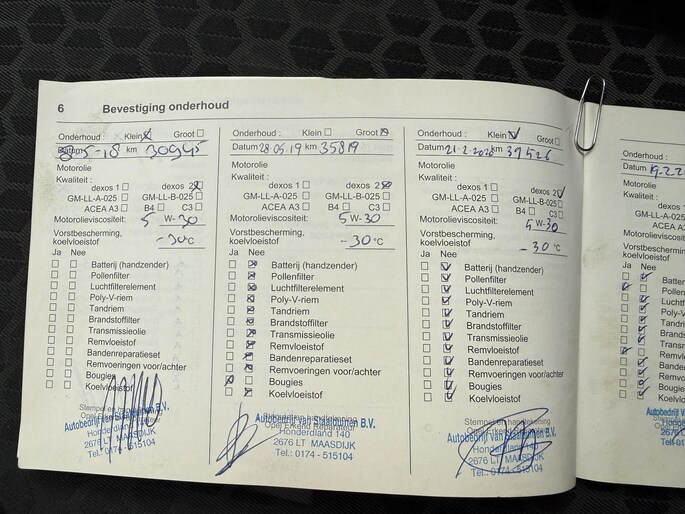 6 Bevestiging onderhoud
Onderhoud : Klein Groot
Datum 8-5-18 km 30945
Motorolie
Kwaliteit :
dexos 1 dexos 2
GM-LL-A-025 GM-LL-B-025
ACEA A3 B4 C3
Motorolieviscositeit: 5 W-30
Vorstbescherming,
koelvloeistof -30°C
Ja Nee
Batterij (handzender)
Pollenfilter
Luchtfilterelement
Poly-V-riem
Tandriem
Brandstoffilter
Transmissieolie
Remvloeistof
Bandenreparatieset
Remvoeringen voor/achter
Bougies
Koelvloeistof
Stempel en
Autobedrijf van Staalduinen B.V.
Honderdland
2676 LT MAASDIJK
Tel.: 0174 - 515104
Onderhoud : Klein Groot
Datum 28 05.19 km 35819
Motorolie
Kwaliteit :
dexos 1 dexos 2
GM-LL-A-025 GM-LL-B-025
ACEA A3 B4 C3
Motorolieviscositeit: 5 W-30
Vorstbescherming,
koelvloeistof -30°C
Ja Nee
Batterij (handzender)
Pollenfilter
Luchtfilterelement
Poly-V-riem
Tandriem
Brandstoffilter
Transmissieolie
Remvloeistof
Bandenreparatieset
Remvoeringen voor/achter
Bougies
Koelvloeistof
Autobedrijf van Staalduinen B.V.
Opel Erkend Reparateur
Honderdland 140
2676 LT MAASDIJK
Tel.: 0174 - 515104
Onderhoud : Klein Groot
Datum 21-2-2020 km 39526
Motorolie
Kwaliteit :
dexos 1 dexos 2
GM-LL-A-025 GM-LL-B-025
ACEA A3 B4 C3
Motorolieviscositeit: 5 W-30
Vorstbescherming,
koelvloeistof -30°C
Ja Nee
Batterij (handzender)
Pollenfilter
Luchtfilterelement
Poly-V-riem
Tandriem
Brandstoffilter
Transmissieolie
Remvloeistof
Bandenreparatieset
Remvoeringen voor/achter
Bougies
Koelvloeistof
Stempel en handtekening
Autobedrijf van Staalduinen B.V.
Honderdland 140
2676 LT MAASDIJK
Tel.: 0174 - 515104
Onderhoud :
Datum
Motorolie
Kwaliteit :
GM-LL-A-025
ACEA A3
Motorolieviscositeit
Vorstbescherming,
koelvloeistof
Ja Nee
Batterij
Pollen
Luchtf
Poly-V
Tandri
Brand
Transm
Remvl
Bande
Remv
Bougi
Koelv